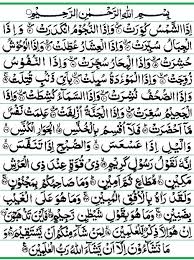 بِسْمِ اللهِ الرَّحْمٰنِ الرَّحِيْمِ
إِذَا الشَّمْسُ كُوِّرَتْ وَإِذَا النُّجُوْمُ انْكَدَرَتْ وَإِذَا
الْجِبَالُ سُيِّرَتْ وَإِذَا الْعِشَارُ عُطِّلَتْ وَإِذَا الْوُحُوْشُ
حُشِرَتْ وَإِذَا الْبِحَارُ سُجِّرَتْ وَإِذَا النُّفُوْسُ
زُوِّجَتْ وَإِذَا الْمَوْءُدَةُ سُئِلَتْ بِأَيِّ ذَنْبٍ قُتِلَتْ
وَإِذَا الصُّحُفُ نُشِرَتْ وَإِذَا السَّمَاءُ كُشِطَتْ وَإِذَا
الْجَحِيْمُ سُعِّرَتْ وَإِذَا الْجَنَّةُ أُزْلِفَتْ عَلِمَتْ نَفْسٌ
مَا أَحْضَرَتْ فَلَا أُقْسِمُ بِالْخُنَّسِ الْجَوَارِ الْكُنَّسِ
وَاللَّيْلِ إِذَا عَسْعَسَ وَالصُّبْحِ إِذَا تَنَفَّسَ
إِنَّهُ لَقَوْلُ رَسُوْلٍ كَرِيْمٍ ذِي قُوَّةٍ عِنْدَ ذِي الْعَرْشِ
مَكِيْنٍ مُطَاعٍ ثَمَّ أَمِيْنٍ وَمَا صَاحِبُكُمْ بِمَجْنُوْنٍ
وَلَقَدْ رَآهُ بِالْأُفُقِ الْمُبِيْنِ وَمَا هُوَ عَلَى الْغَيْبِ
بِضَنِيْنٍ وَمَا هُوَ بِقَوْلِ شَيْطٰنٍ رَجِيْمٍ فَأَيْنَ تَذْهَبُوْنَ
إِنْ هُوَ إِلَّا ذِكْرٌ لِلْعٰلَمِيْنَ لِمَنْ شَاءَ مِنْكُمْ أَنْ يَسْتَقِيْمَ وَ
مَا تَشَاءُوْنَ إِلَّا أَنْ يَشَاءَ اللهُ رَبُّ الْعٰلَمِيْنَ